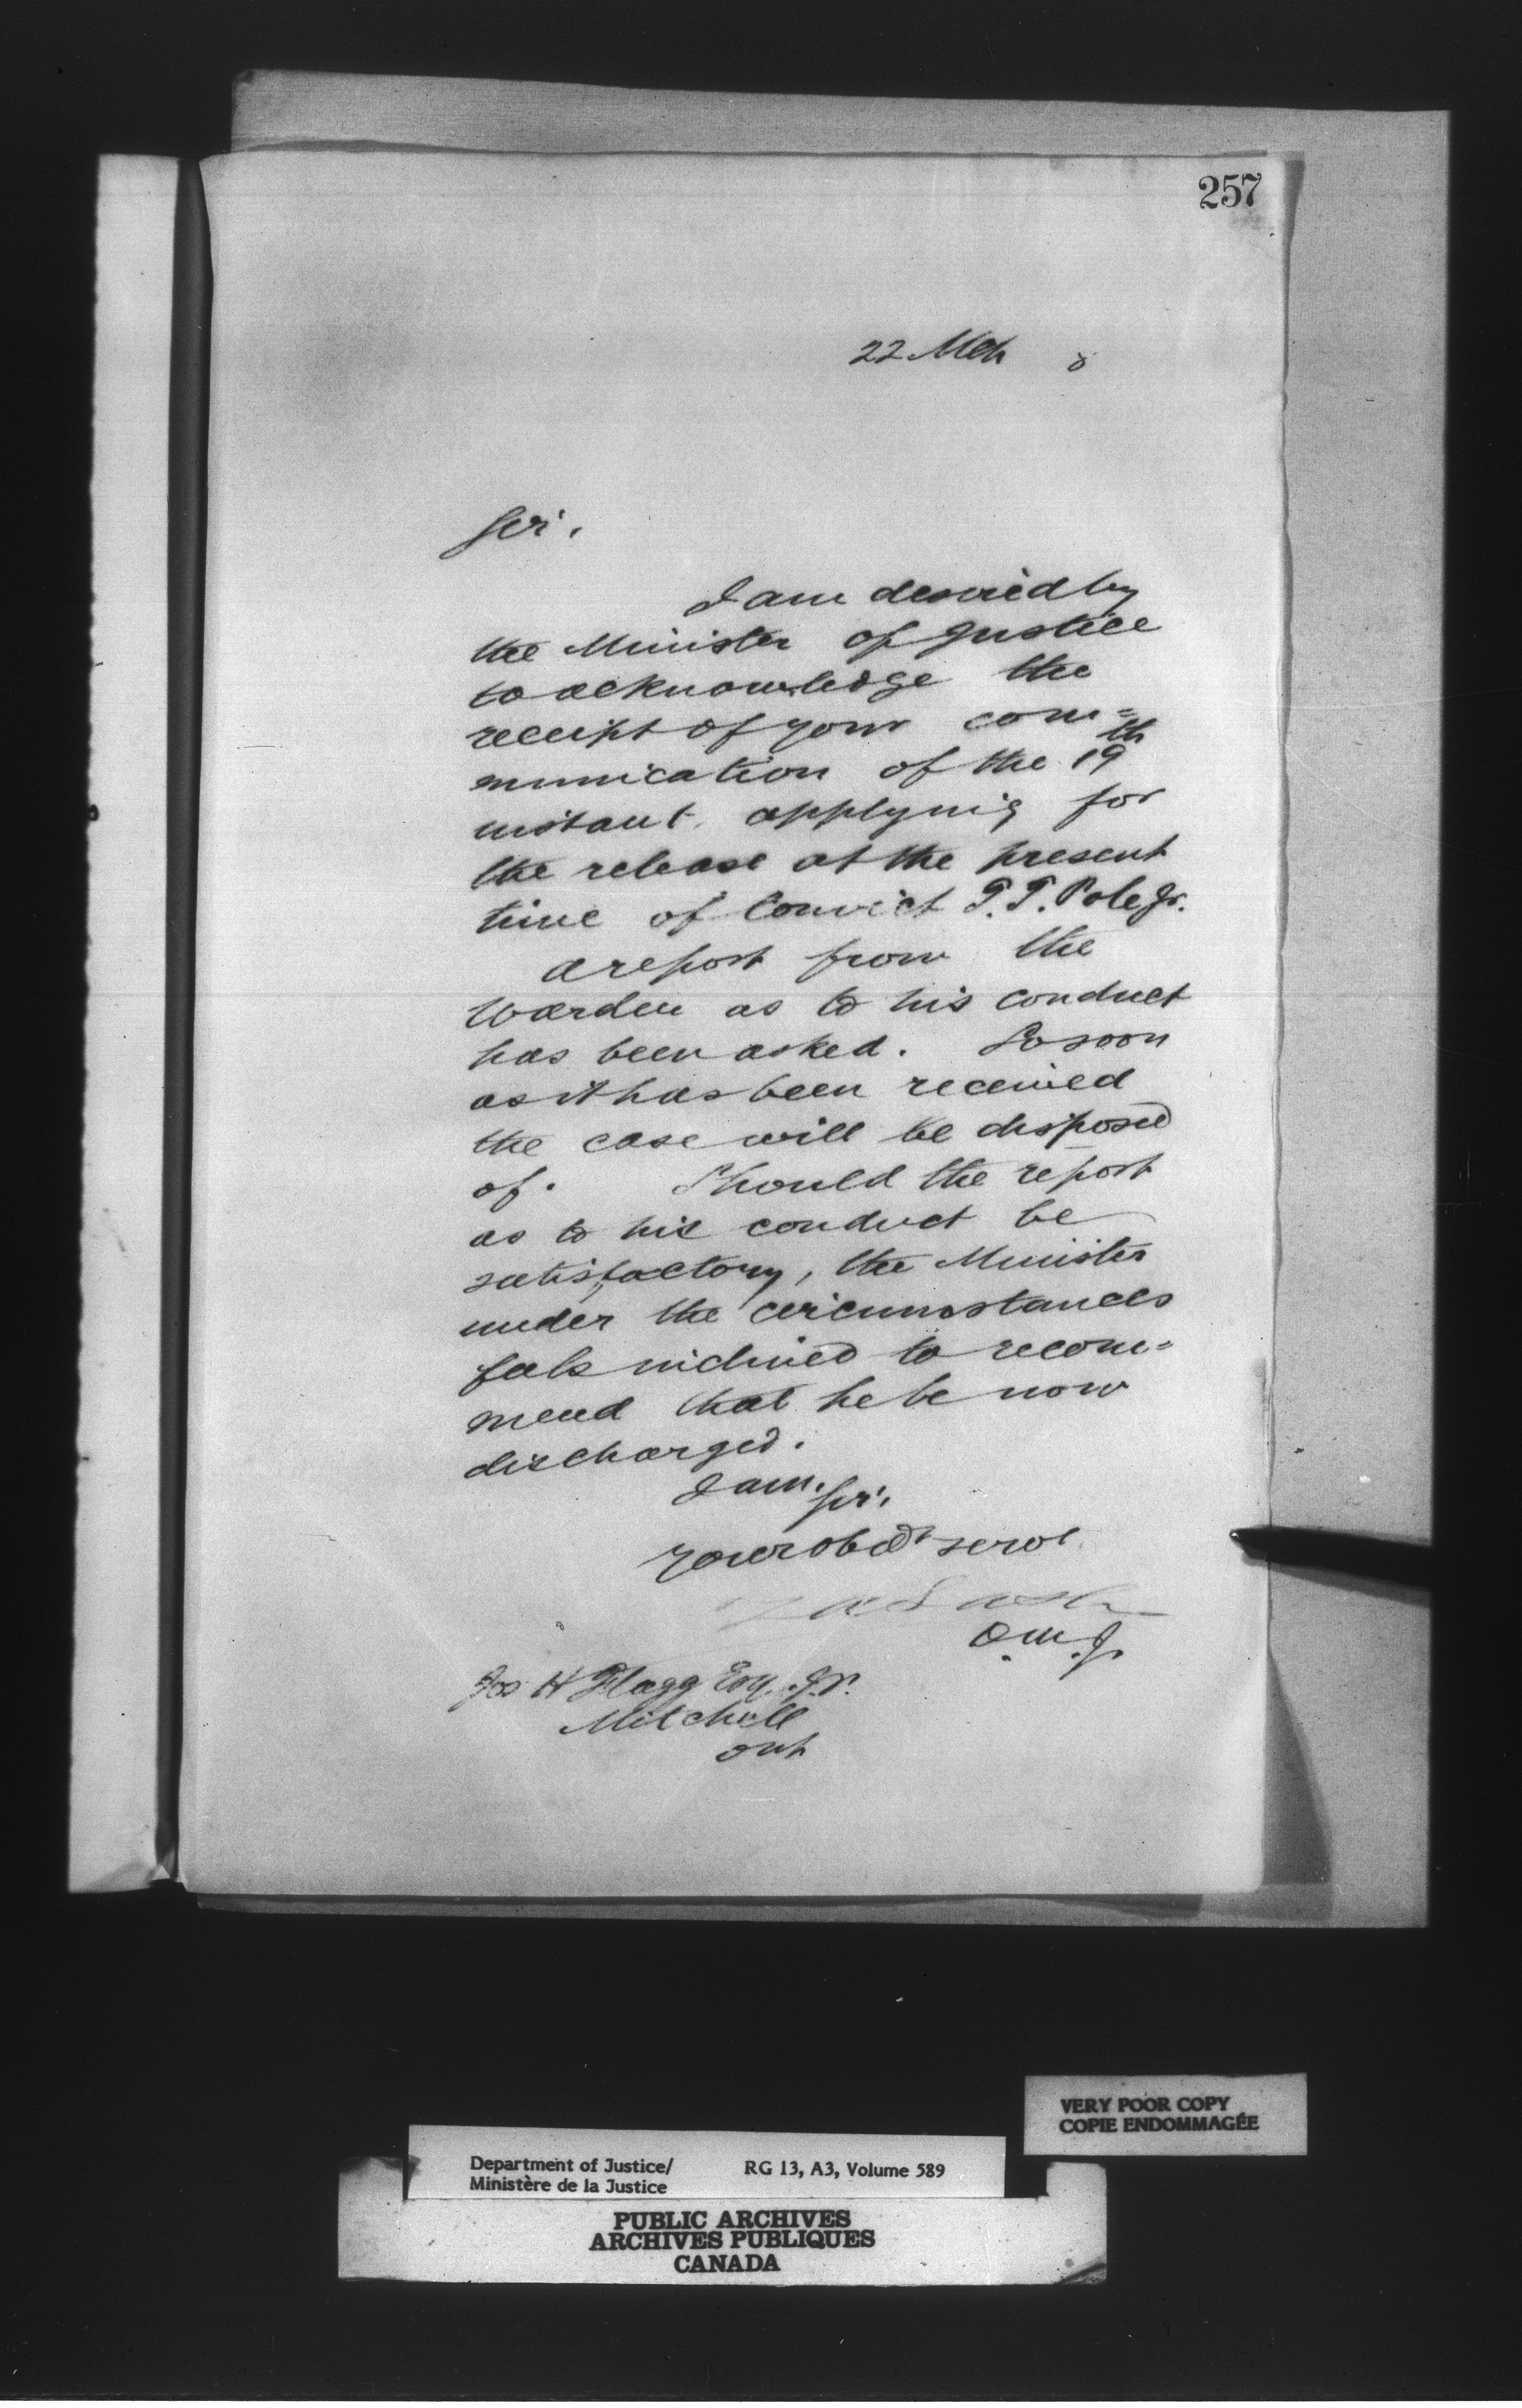 257
22 Mch 8
Sir,
I am desired by
the Minister of Justice
to acknowledge the
receipt of your com=
munication of the 19th
instant applying for
the release at the present
time of Convict T. T. Pole Jr.
A report from the
Warden as to his conduct
has been asked. So soon
as it has been received
the case will be disposed
of. Should the report
as to his conduct be
satisfactory, the Minister
under the circumstances
feels inclined to recom=
mend that he be now
discharged.
I am, Sir,
Your obdt servt
Z A Lash
D.M.J.
Jos H Flagg Esq. J.P.
Mitchell
Ont
VERY POOR COPY
COPIE ENDOMMAGÉE
Department of Justice/ RG 13, A3, Volume 589
Ministère de la Justice
PUBLIC ARCHIVES
ARCHIVES PUBLIQUES
CANADA